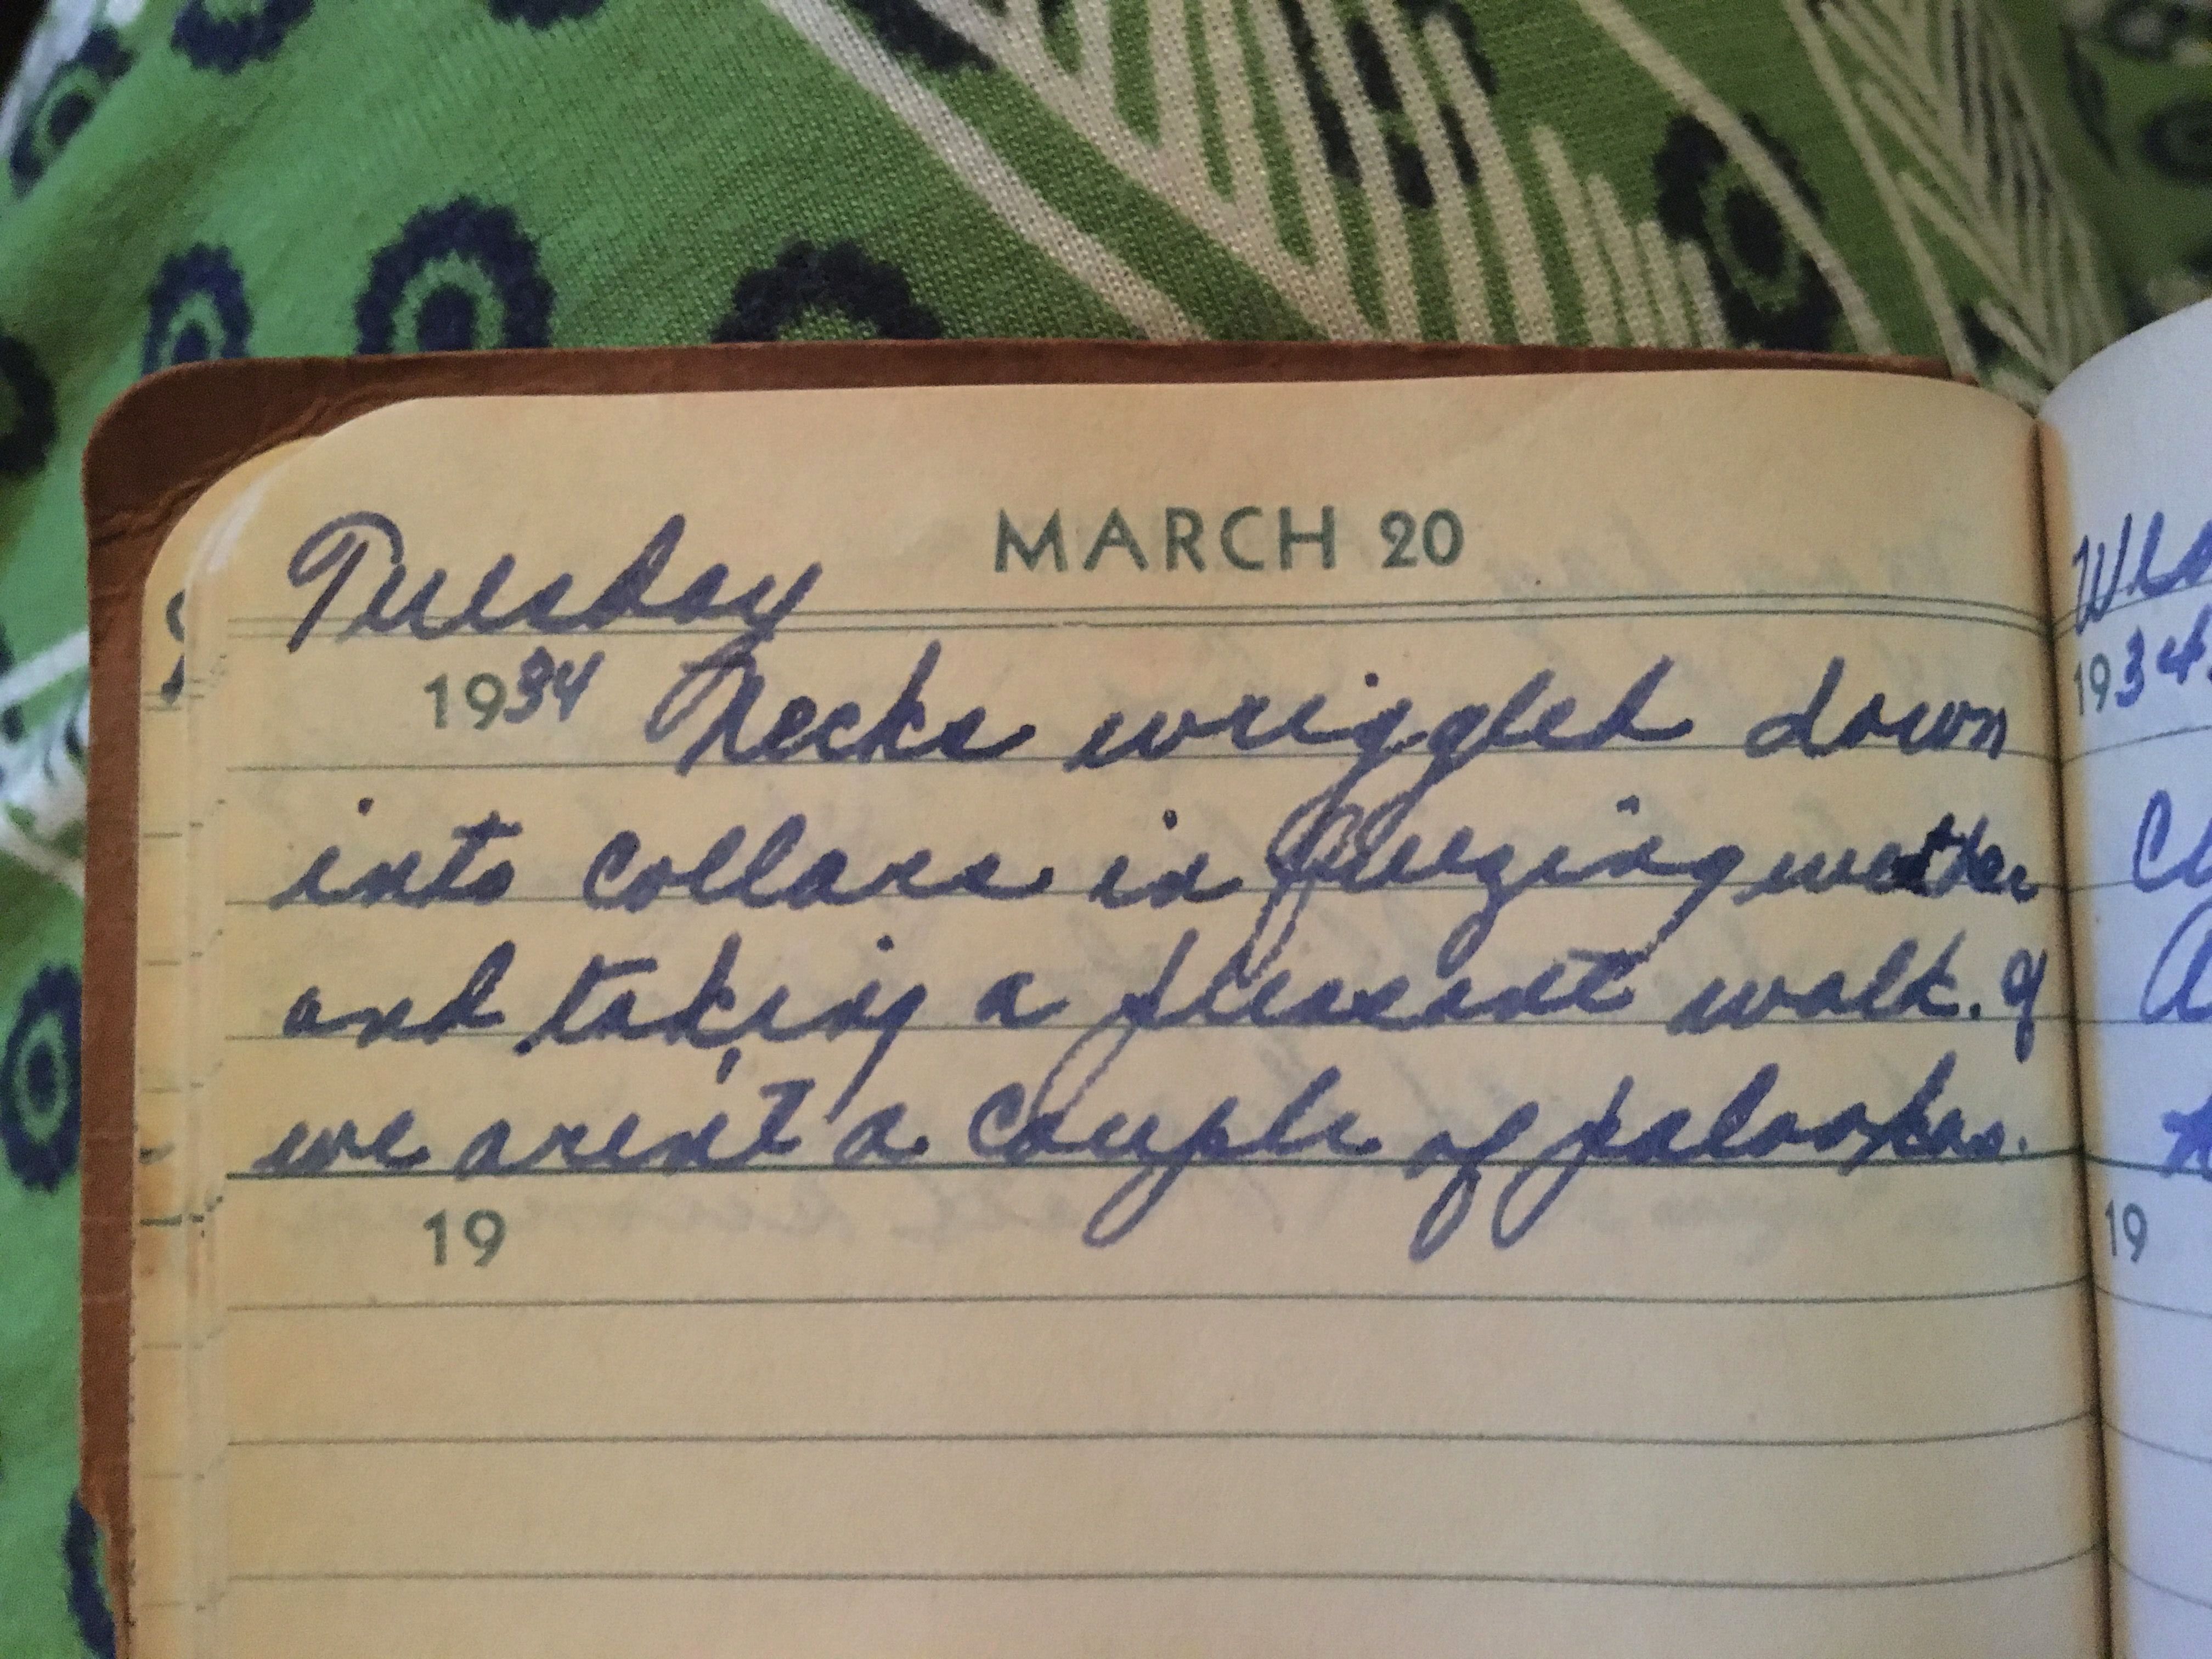 MARCH 20
Tuesday
1934 Necks wriggled down
into collars in freezing weather
and taking a pleasant walk. If
we aren't a couple of palookas.
19
We
1934
Cl
19